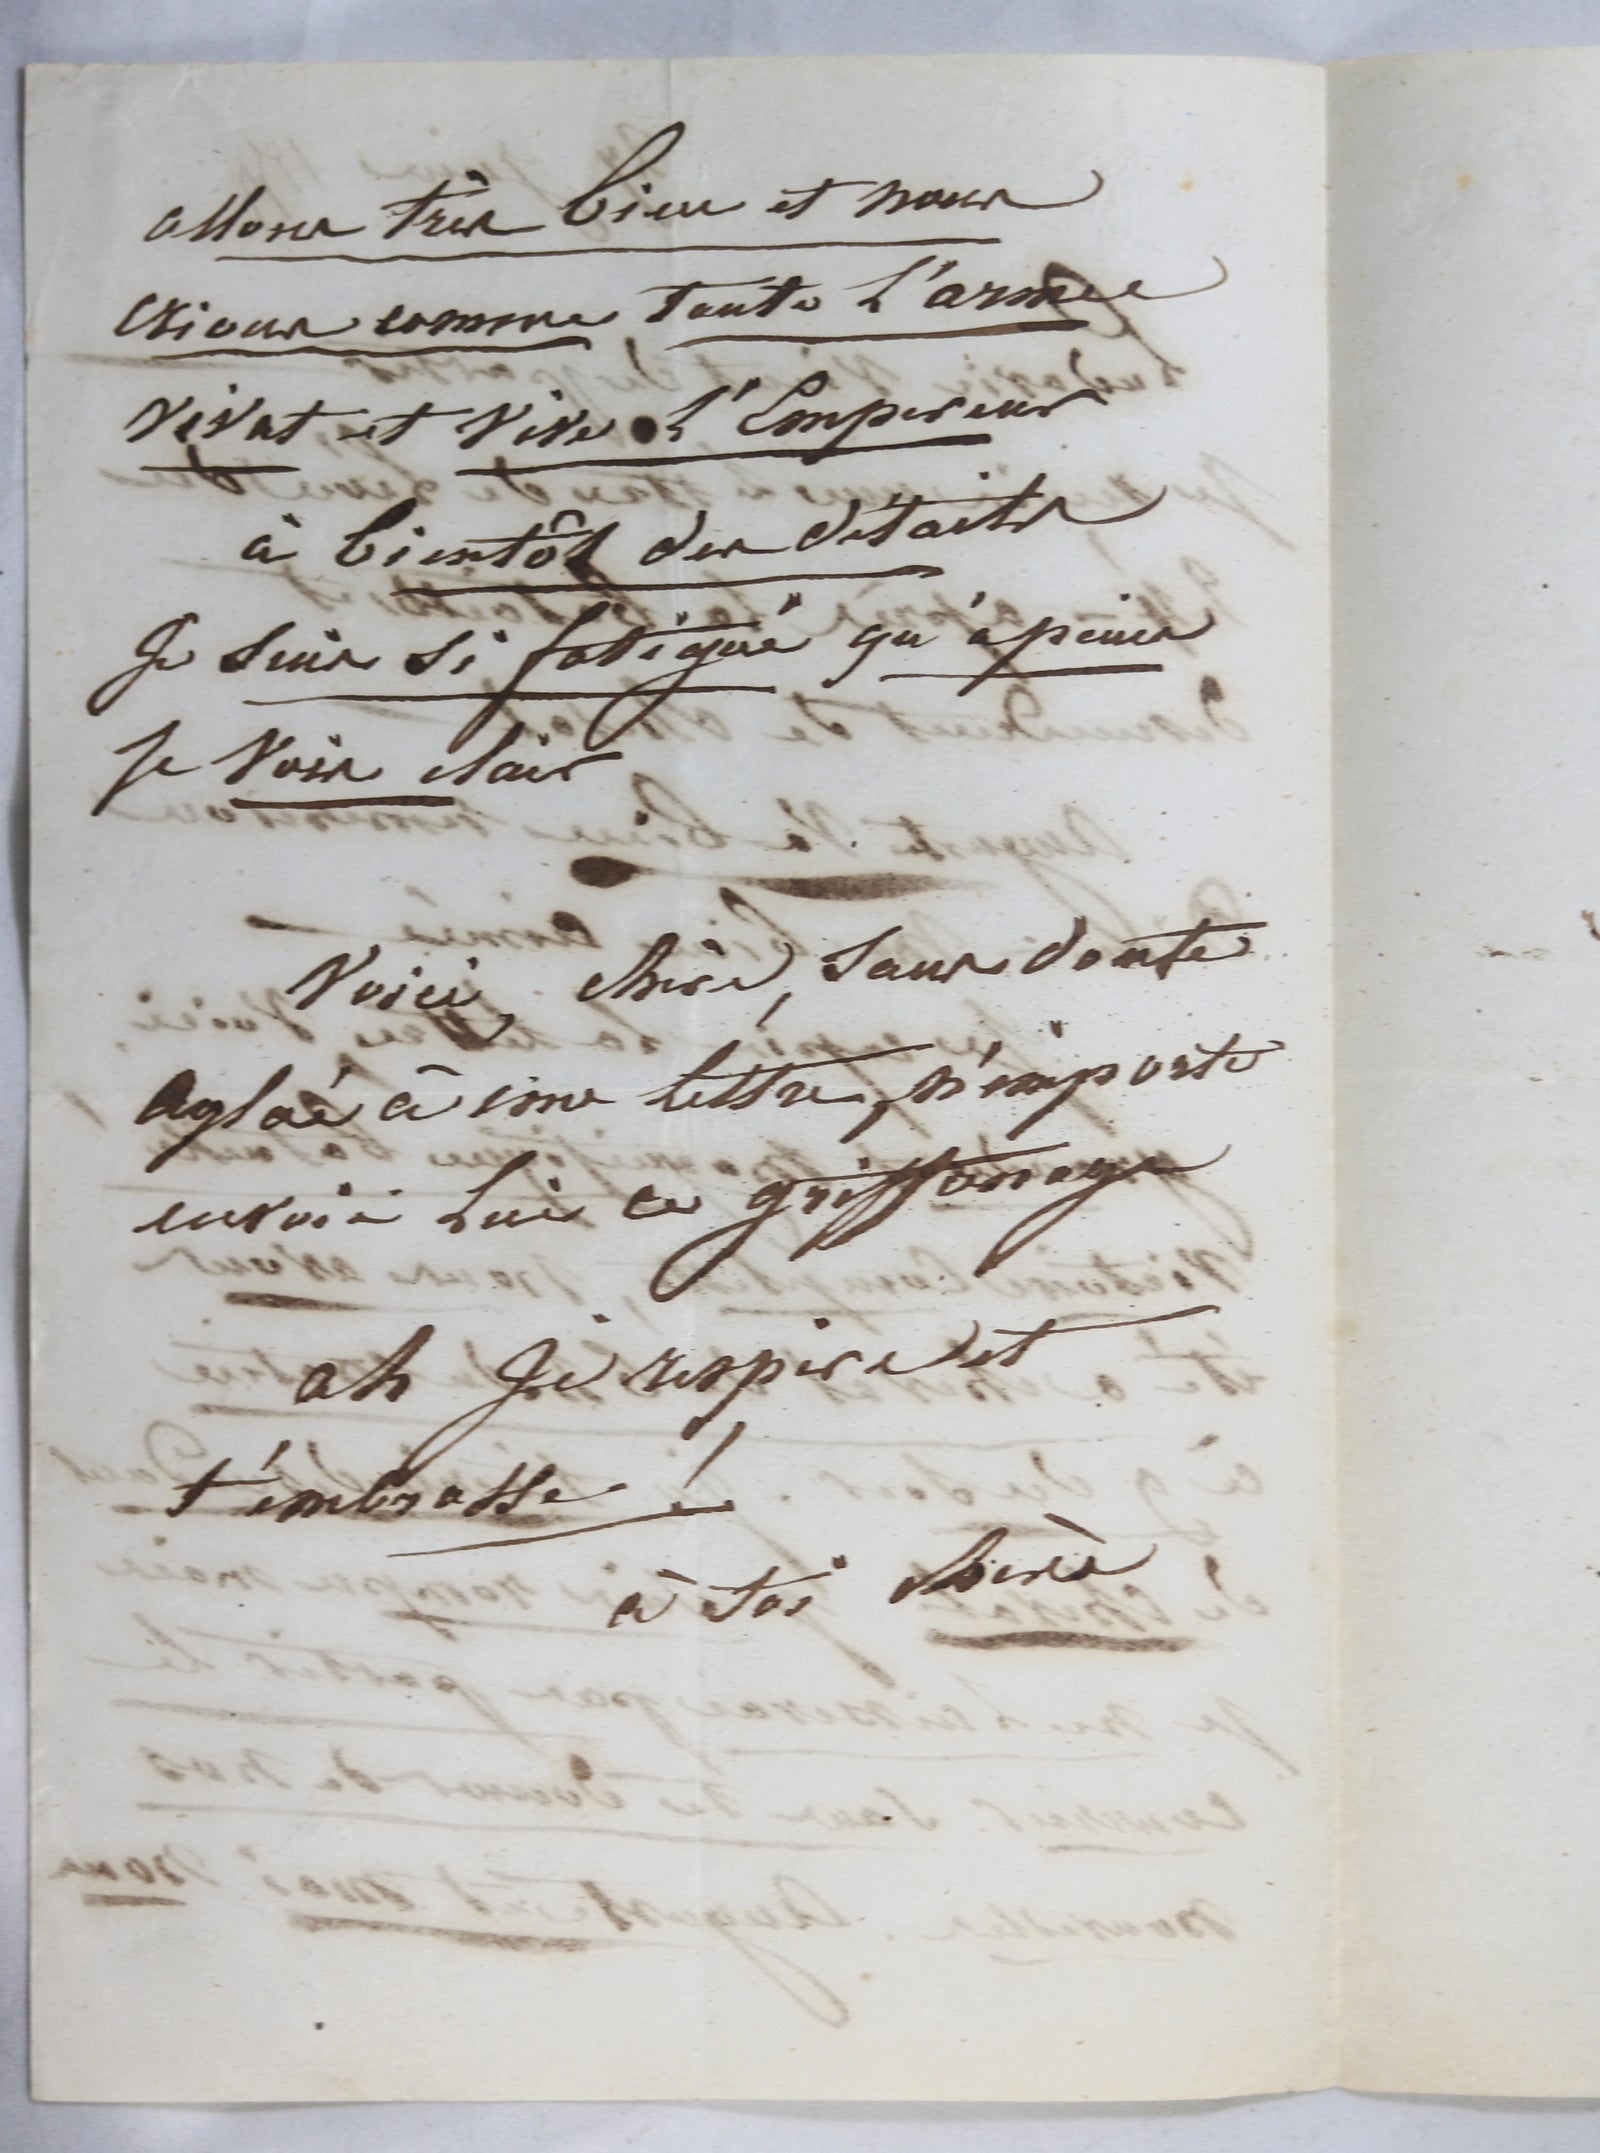 allons très bien et nous
crions comme toute l'armée
vivat et vive l'Empereur
à bientôt des détails
Je suis si fatigué qu'à peine
je vois clair
Voici, chère, sans doute
aglaé à une lettre, n'importe
envoie lui ce griffonage
ah Je respire et
t'embrasse !
à toi chère